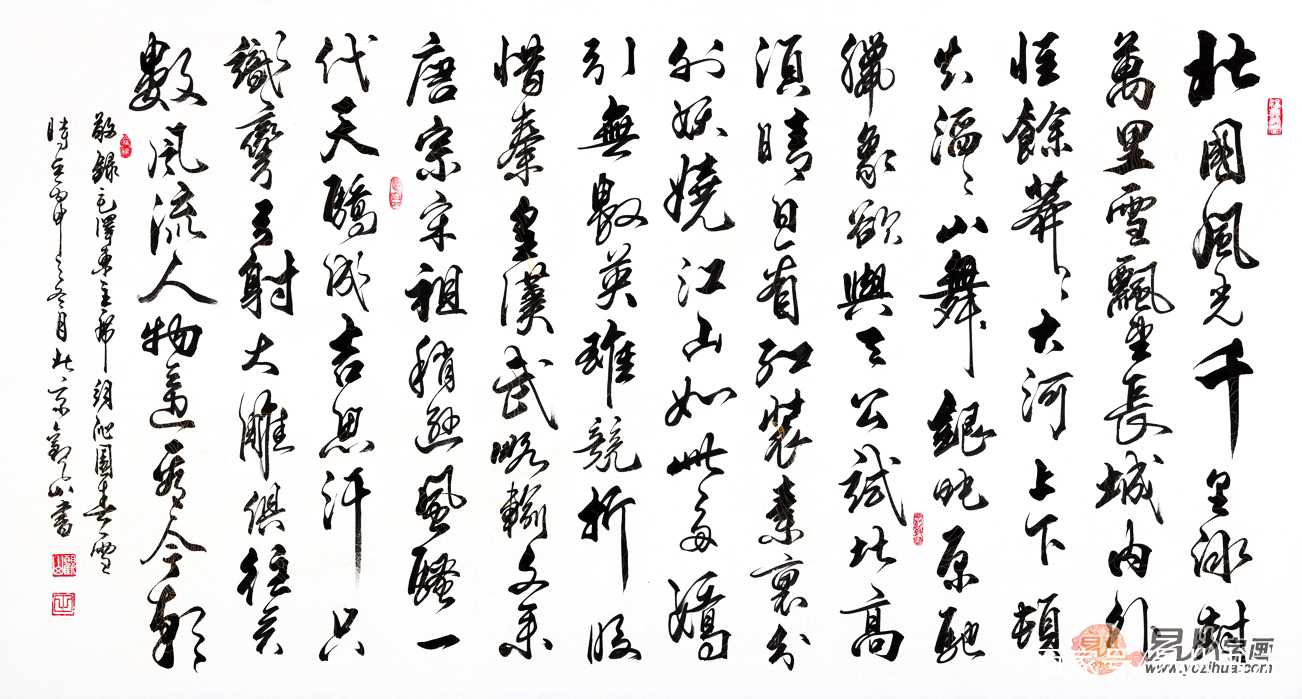 北國風光千里冰封
萬里雪飄望長城内外
惟餘莽〻大河上下頓
失滔〻山舞銀蛇原馳
臘象欲與天公試比高
須晴日看紅裝素裹分
外妖嬈江山如此多嬌
引無數英雄競折腰
惜秦皇漢武略輸文采
唐宗宋祖稍遜風騷一
代天驕成吉思汗只
識彎弓射大雕俱往矣
數風流人物還看今朝
敬錄毛澤東主席詞沁園春雪
時在丙申之冬月北京觀山書
www.yozihua.com